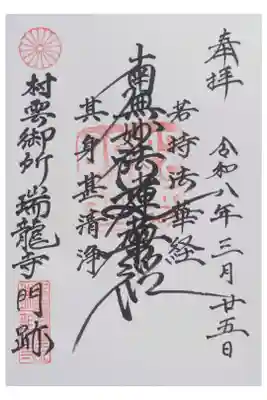 奉拝
令和八年三月廿五日
若持法華経
南無妙法蓮華経
其身甚清浄
村雲御所 瑞龍寺門跡